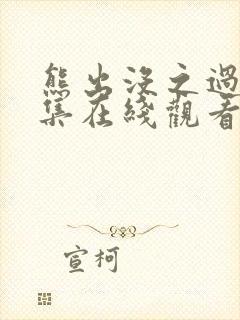 熊出沒之過
集在綫觀看
宣柯